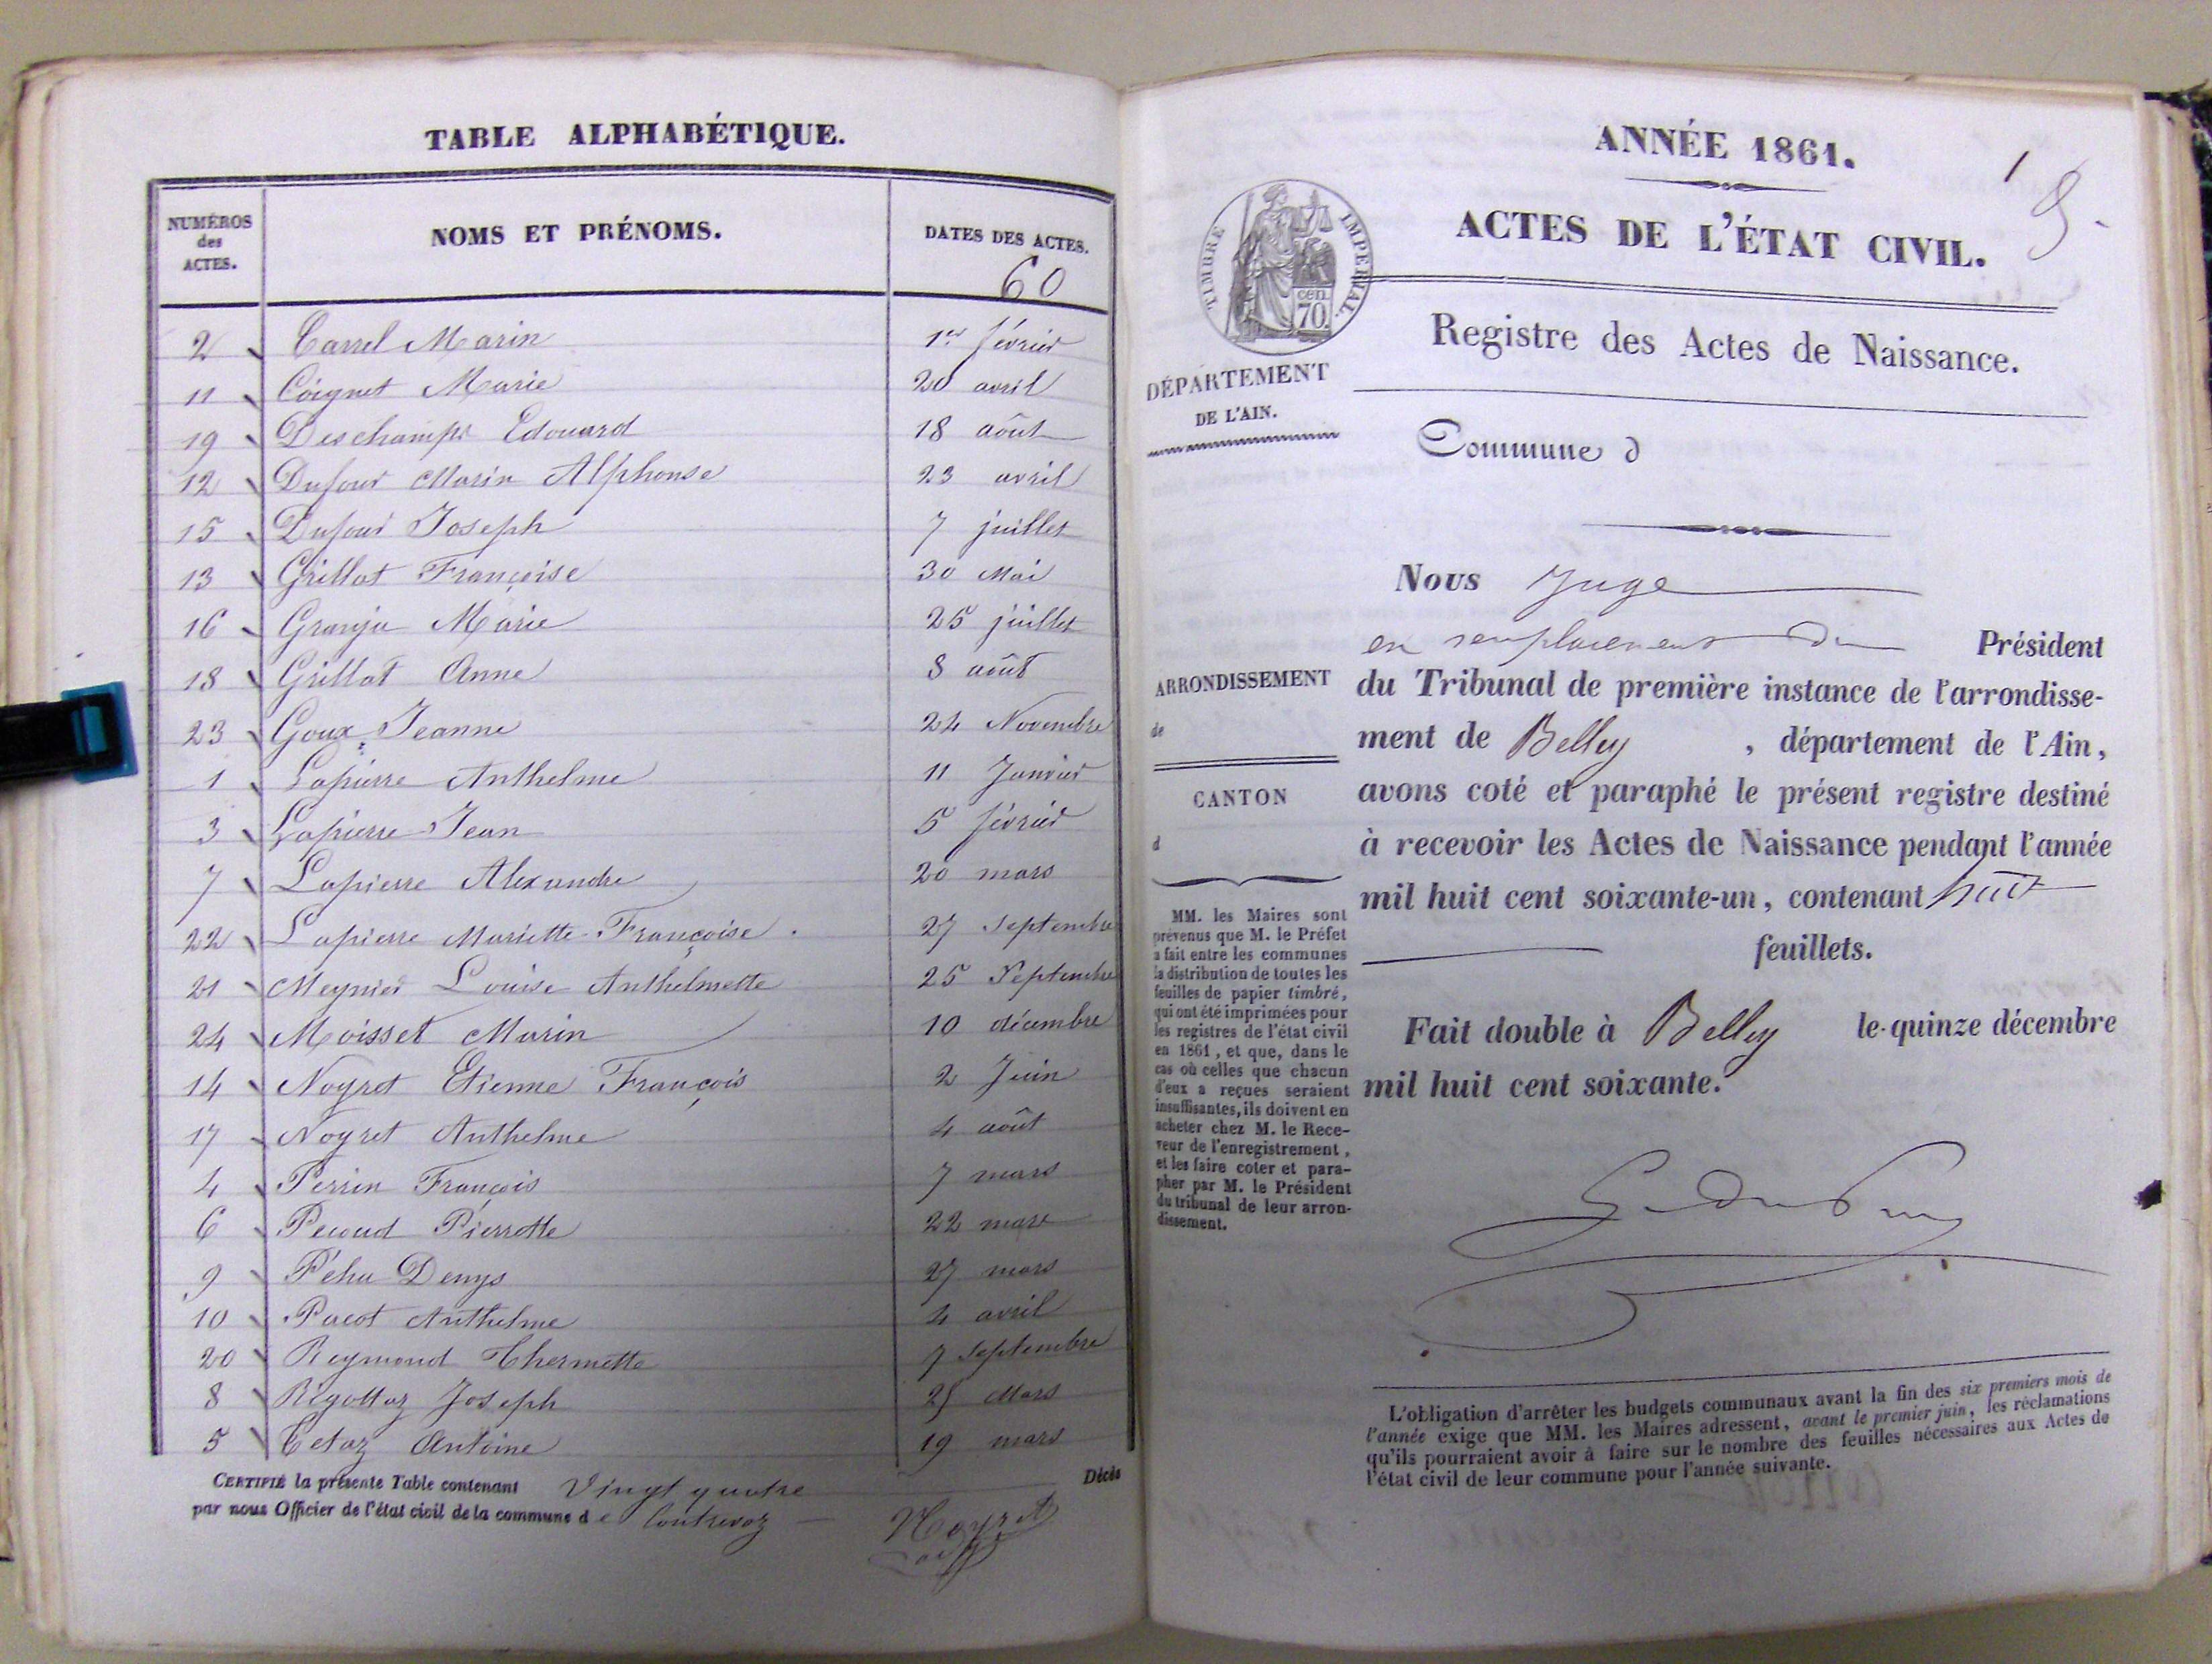 TABLE ALPHABÉTIQUE.
NUMÉROS des ACTES.
NOMS ET PRÉNOMS.
DATES DES ACTES.
60
2 Carrel Marin 1er février
11 Coignet Marie 20 avril
19 Deschamps Edouard 18 août
12 Dufour Marin Alphonse 23 avril
15 Dufour Joseph 7 juillet
13 Grillot Françoise 30 Mai
16 Granju Marie 25 juillet
18 Grillot Anne 8 août
23 Goux Jeanne 24 Novembre
1 Lapierre Anthelme 11 Janvier
3 Lapierre Jean 5 février
7 Lapierre Alexandre 20 mars
22 Lapierre Mariette Françoise. 27 Septembre
21 Meynier Louise Anthelmette 25 Septembre
24 Moisset Marin 10 décembre
14 Noyret Etienne François 2 Juin
17 Noyret Anthelme 4 août
4 Perrin François 7 mars
6 Pecoud Pierrotte 22 mars
9 Pehu Denys 27 mars
10 Pacot Anthelme 4 avril
20 Reymond Thermette 7 Septembre
8 Rigottaz Joseph 25 Mars
5 Tetaz Antoine 19 mars
CERTIFIÉ la présente Table contenant Vingt quatre Décès
par nous Officier de l'état civil de la commune de Contrevoz
Noyret
ANNÉE 1861.
1
ACTES DE L'ÉTAT CIVIL.
TIMBRE IMPERIAL.
cen. 70.
Registre des Actes de Naissance.
DÉPARTEMENT
DE L'AIN.
Commune d
Nous Juge
en remplacement du Président
ARRONDISSEMENT
de
CANTON
d
du Tribunal de première instance de l'arrondisse-
ment de Belley, département de l'Ain,
avons coté et paraphé le présent registre destiné
à recevoir les Actes de Naissance pendant l'année
mil huit cent soixante-un, contenant huit
feuillets.
Fait double à Belley le quinze décembre
mil huit cent soixante.
MM. les Maires sont
prévenus que M. le Préfet
a fait entre les communes
la distribution de toutes les
feuilles de papier timbré,
qui ont été imprimées pour
les registres de l'état civil
en 1861, et que, dans le
cas où celles que chacun
d'eux a reçues seraient
insuffisantes, ils doivent en
acheter chez M. le Rece-
veur de l'enregistrement,
et les faire coter et para-
pher par M. le Président
du tribunal de leur arron-
dissement.
L'obligation d'arrêter les budgets communaux avant la fin des six premiers mois de
l'année exige que MM. les Maires adressent, avant le premier juin, les réclamations
qu'ils pourraient avoir à faire sur le nombre des feuilles nécessaires aux Actes de
l'état civil de leur commune pour l'année suivante.